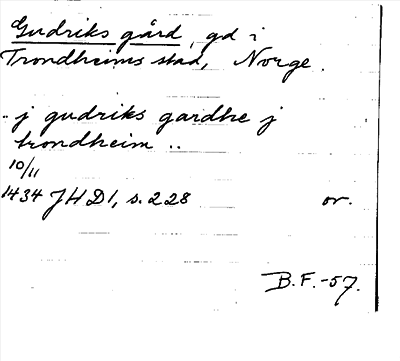 Gudriks gård, gd i
Trondheims stad, Norge.
.. j gudriks gardhe j
trondheim ..
10/11
1434 JHD1, s. 228 or.
B.F.-57.